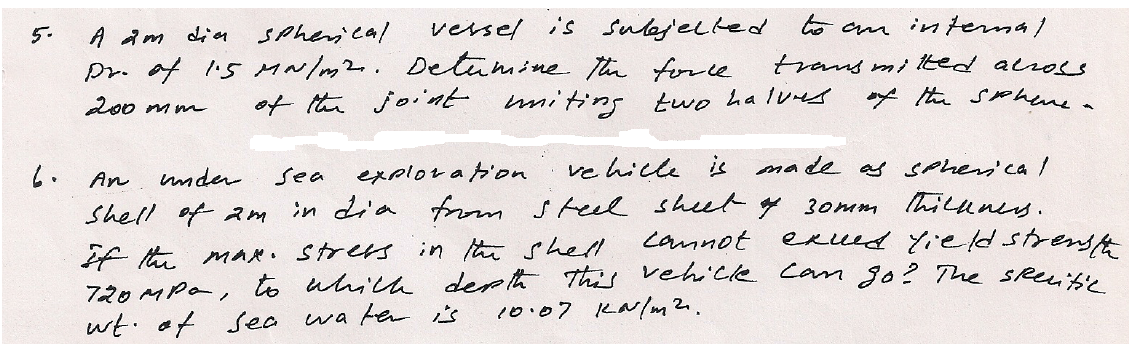 5. A 2m dia spherical vessel is subjected to an internal
Pr. of 1.5 MN/m². Determine the force transmitted across
200 mm of the joint uniting two halves of the sphere.
6. An under sea exploration vehicle is made as spherical
shell of 2m in dia from steel sheet of 30mm thickness.
If the max. stress in the shell cannot exceed yield strength
720 MPa, to which depth this vehicle can go? The specific
wt. of sea water is 10.07 KN/m².